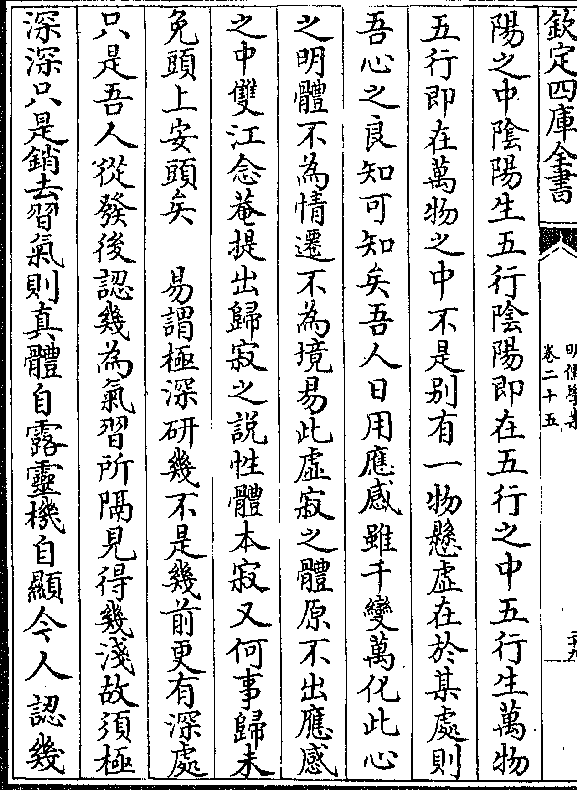 欽定四庫全書
明儒學案
卷二十五
陽之中陰陽生五行陰陽即在五行之中五行生萬物
五行即在萬物之中不是别有一物懸虛在於某處則
吾心之良知可知矣吾人日用應感雖千變萬化此心
之明體不為情遷不為境易此虛寂之體原不出應感
之中雙江念菴提出歸寂之說性體本寂又何事歸未
免頭上安頭矣　易謂極深研幾不是幾前更有深處
只是吾人從發後認幾為氣習所隔見得幾淺故須極
深深只是銷去習氣則真體自露靈機自顯今人認幾